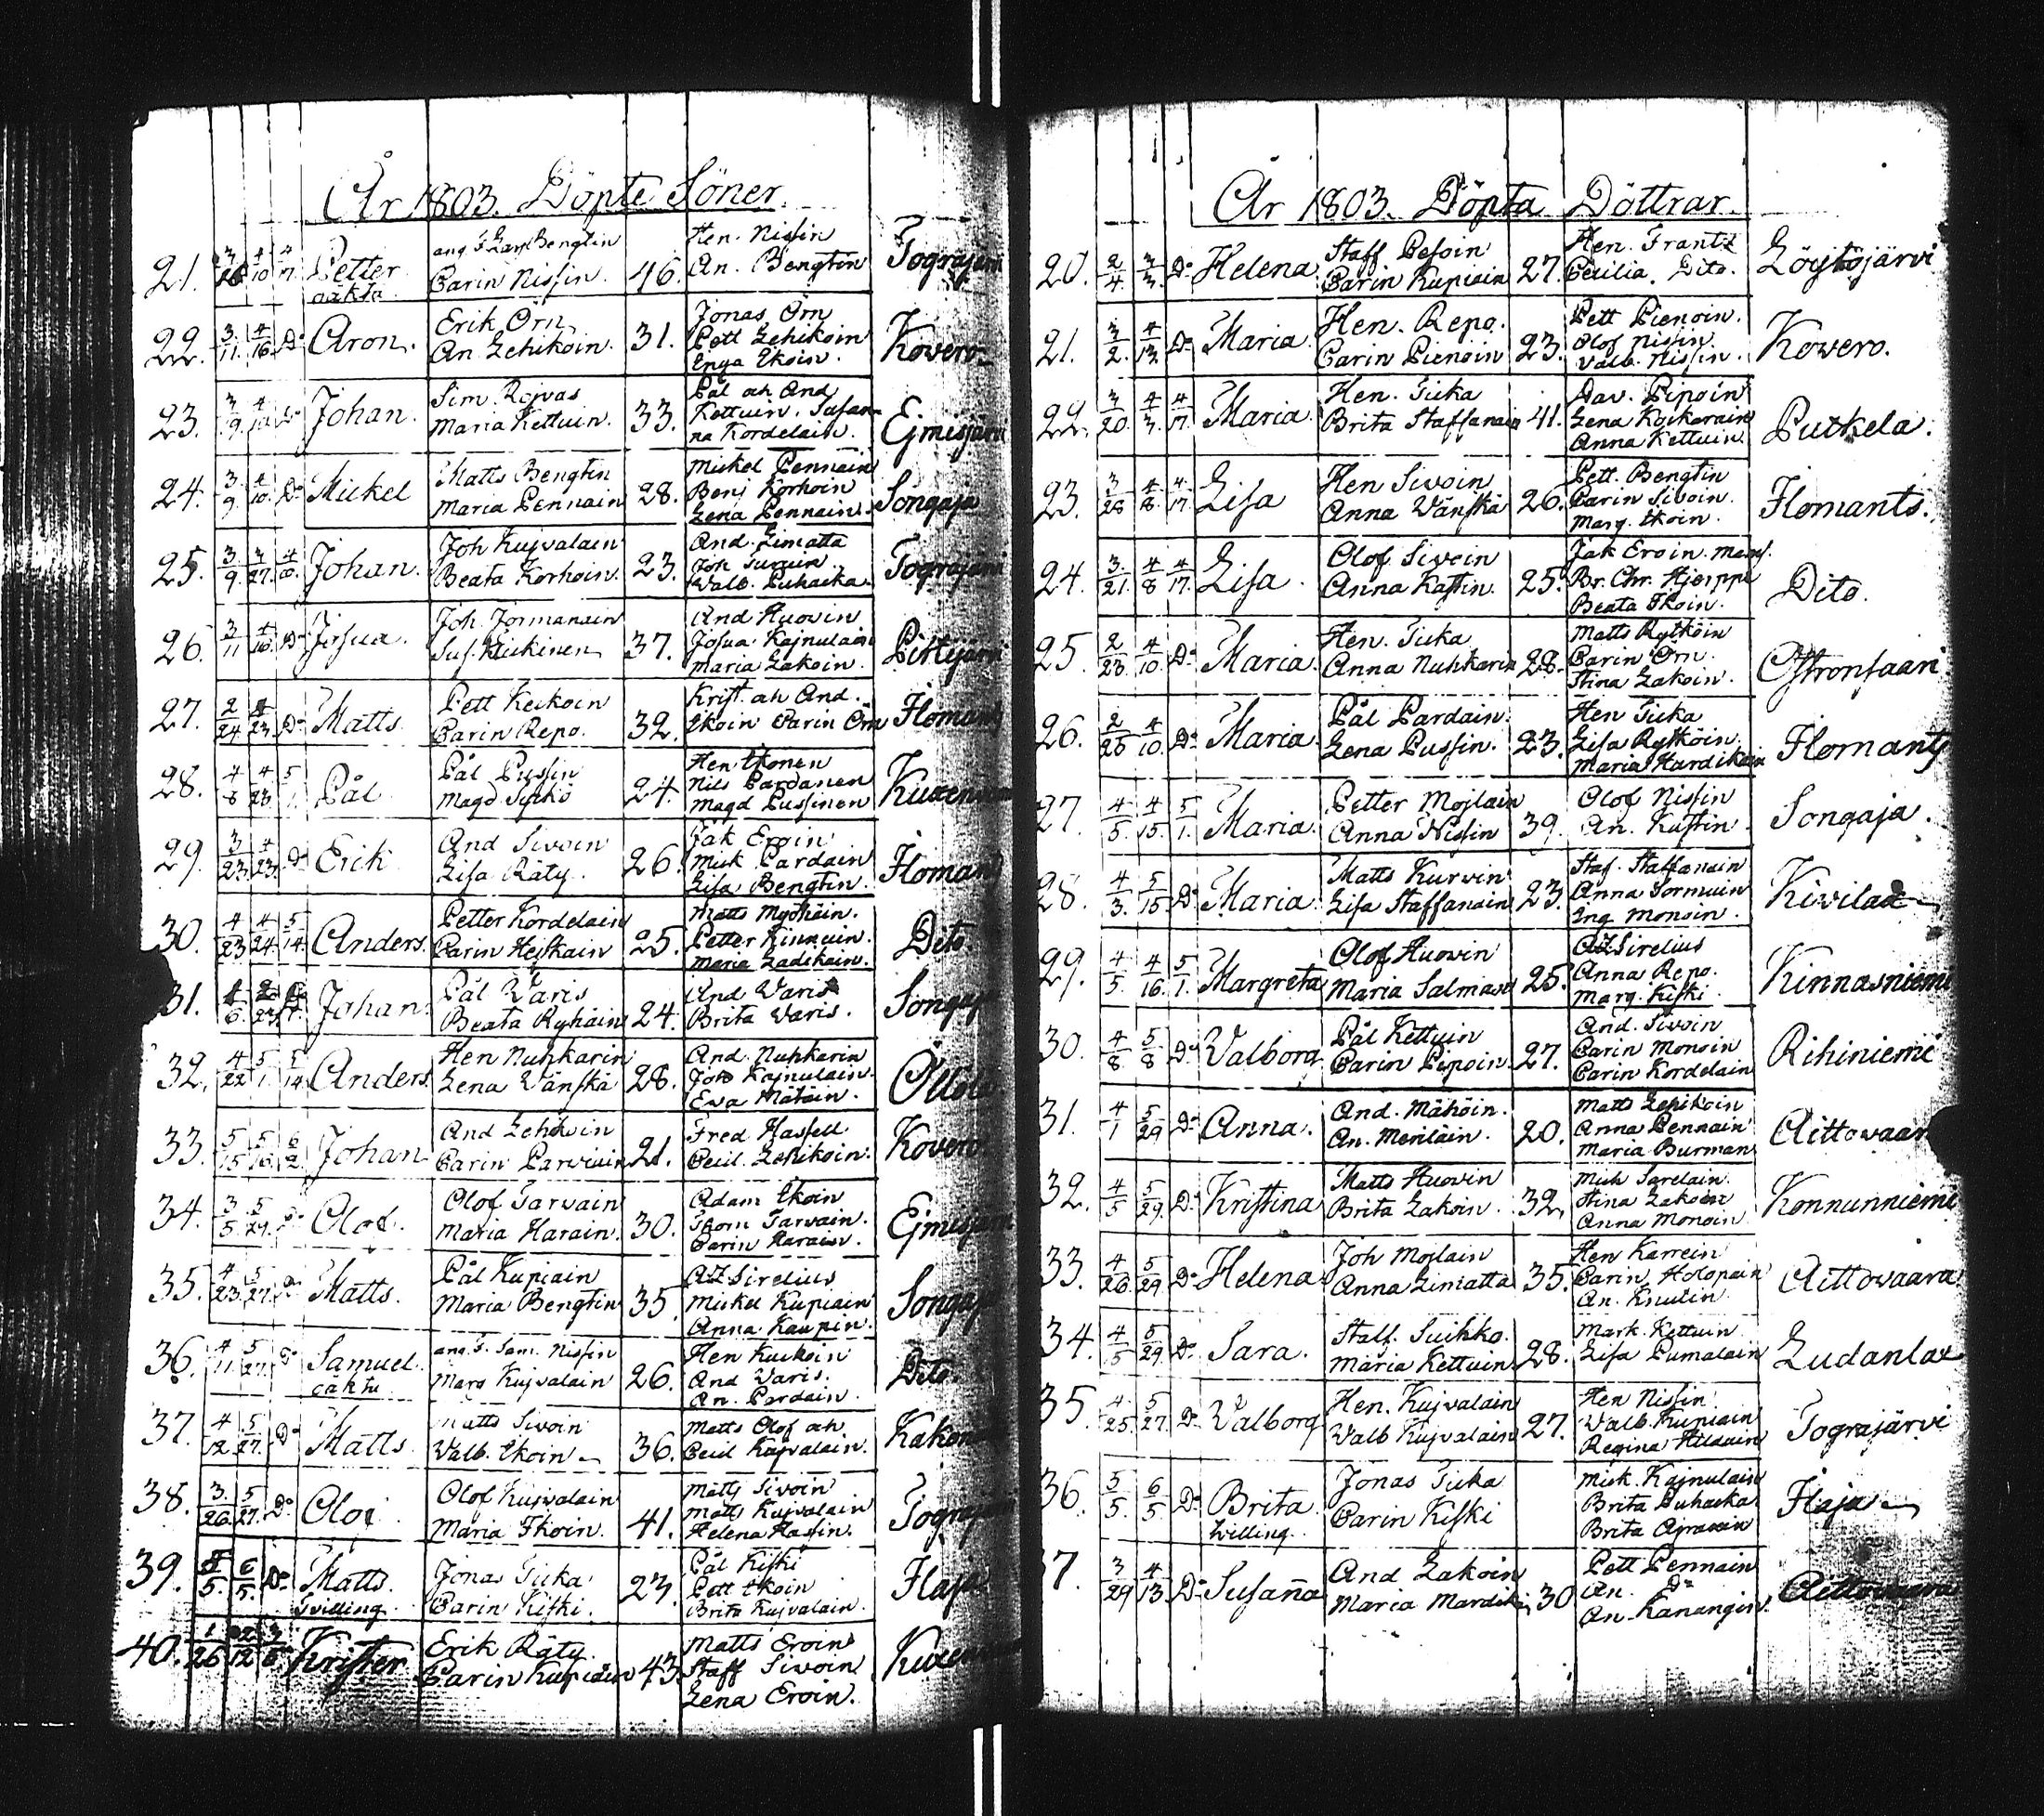 År 1803. Döpte Söner.
21. 3/26 4/10 4/17 Petter oäkta. Carin Nissin. 46. Hen. Nissin An. Bengtin
22. 3/11. 4/16. Do Aron. Erik Örn An. Lehikoin. 31. Jonas Örn Pett Lehikoin Inga Ikoin. Kowero
23. 3/9. 4/10. Do Johan. Sim. Rojvas Maria Kettuin. 33. Pål åk And Kettuin. Susan- na Kordelain.
24. 3/9. 4/10. Do Mickel Matts Bengtin Maria Pennain 28. Mickel Pennain Benj Korhoin Lena Pennain. Songaja
25. 3/9 3/27. Johan. Joh Kujvalain Beata Korhoin. 23. And. Limatta Valb. Puhacka
26. 3/11 4/10. Do Josua. Joh. Jormanain 37. And Huowin Josua Kajnulain Maria Lakoin.
27. 2/24 4/23. Do Matts. Pett Keikoin Carin Repo. 32. Krist. åk And. Ikoin Carin Örn
28. 4/8 4/23. 5/1. Pål Pål Pussin Magd Sifko 24. Hen Ikonen Nils Pardanen Magd Pussinen
29. 3/23. 4/23. Do Erik And Sivoin Lisa Räty. 26. Jak Eroin Mick Pardain Lisa Bengtin.
30. 4/23 4/24. 5/14. Anders. Petter Kordelain Carin Heiskain 25. Matts Myöhäin. Petter Kinnuin. Maria Ladikain. Dito.
31. Johan. Pål Waris Beata Ryhäin 24. And Waris Brita Waris.
32. 4/22 5/1. 5/14 Anders. Hen Nuhkarin Lena Wänskä 28. And. Nuhkarin Joh Kajnulain. Ewa Mätäin.
33. 5/15 5/16. 6/2. Johan And Lehikoin Carin Parviain 21. Fred Hassell Cecil. Lehikoin.
34. 3/5. 5/27. Olof. Olof Tarvain Maria Harain. 30. Adam Ikoin Thom Tarvain. Carin Harain.
35. 4/23. 5/27. Do Matts. Pål Kupiain Maria Bengtin 35. AZ Sirelius Mickel Kupiain Anna Kaupin.
36. 4/11. 5/27. Do Samuel. oäkta Sam. Nissin Marg Kujvalain 26. Hen Kuikoin And Waris. An. Pardain. Dito.
37. 4/12 5/27. Do Matts Matts Sivoin Valb. Ikoin 36. Matts Olof åk Cecil Kujvalain.
38. 3/26. 5/27. Do Olof Olof Kujvalain Maria Ikoin. 41. Matts Sivoin Matts Kujvalain Helena Hassin.
39. 5/5. 6/5. Do Matts. Tvilling Jonas Tuka Carin Kiski. 23. Pål Kiski Pett Ikoin Brita Kujvalain.
40. 1/26 Krister Erik Räty. Carin Kupiain 43. Matts Eroin Staff Sivoin Lena Eroin.
År 1803. Döpta Döttrar.
20. 2/4. 3/3. Do Helena. Staff Pesoin Carin Kupiain 27. Hen. Frantz Cecilia. Dito. Löytöjärvi
21. 3/2. 4/13. Do Maria. Hen. Repo. Carin Pienoin 23. Pett Pienoin. Olof Nissin. Valb. Nissin. Kowero.
22. 3/20. 4/3. 4/17. Maria. Hen. Tuka Brita Staffanain 41. Dav. Piipoin Lena Koikarain Anna Kettuin. Putkela.
23. 3/28 4/8. 4/17. Lisa Hen Sivoin Anna Wänskä 26. Pett. Bengtin Carin Sivoin. Marg. Ikoin. Ilomants.
24. 3/21. 4/8 4/17. Lisa. Olof Sivoin Anna Kastin. 25. Jak Eroin. Br. Chr. Hjerppe Beata Ikoin. Dito.
25. 2/23. 4/10. Do Maria. Hen. Tuka Anna Nuhkarin 28. Matts Rytköin Carin Örn. Stina Lakoin.
26. 2/25 4/10. Do Maria. Pål Pardain. Lena Pussin. 23. Hen Tuka Lisa Rytköin. Maria Hardikain Ilomants
27. 4/5. 4/15. 5/1. Maria. Petter Mojlain Anna Nissin 39. Olof Nissin An. Kastin. Songaja.
28. 4/3. 5/15. Do Maria. Matts Kurvin Lisa Staffanain 23. Staf. Staffanain Anna Tormuin Ing. Monoin. Kivilax
29. 4/5. 4/16. 5/1. Margreta Olof Huowin Maria Salman 25. AZ Sirelius Anna Repo. Marg. Kiski Kinnasniemi
30. 4/8. 5/8 Do Valborg Pål Kettuin Carin Piipoin. 27. And. Sivoin Carin Monoin Carin Kordelain Rihiniemi
31. 4/1 5/29 Do Anna. And. Mähöin. An. Meriläin. 20. Matts Lehikoin Anna Pennain Maria Burman Aittowaara
32. 4/5 5/29. Do Kristina Matts Huowin Brita Lakoin. 32. Mich Sarelain. Stina Lakoin Anna Monoin Konnunniemi
33. 4/26 5/29 Do Helena Joh Mojlain Anna Limatta 35. Hen Karrein Carin Holopain An. Knutin. Aittowaara
34. 4/5 5/29. Do Sara. Staff. Suihko. Maria Kettuin 28. Mark. Kettuin. Lisa Pumalain Ludanlax
35. 4/25. 5/27. Do Valborg Hen. Kujvalain Valb Kujvalain 27. Hen Nissin. Valb. Kupiain Regina Tograjärvi
36. 5/5. 6/5 Do Brita Tvilling. Jonas Tuka Carin Kiski Mick. Kajnulain Brita Puhacka Brita Ilaja
37. 3/29 4/13 Do Susaña And Lakoin Maria 30 Pett Pennain An. Do An. Kanangin. Aittowaara